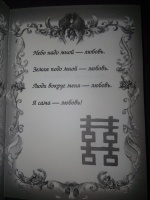 Небо надо мной — любовь.
Земля подо мной — любовь.
Люди вокруг меня — любовь.
Я сама — любовь!
囍